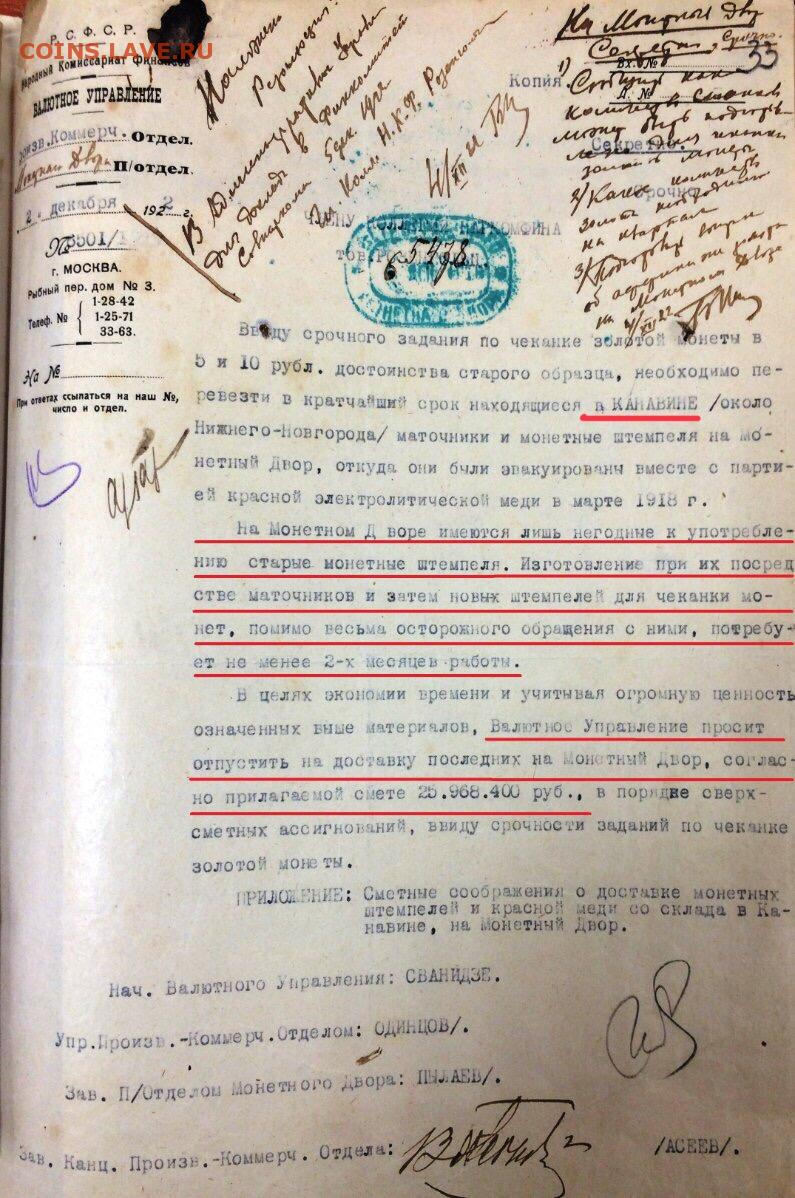 COINS.LAVE.RU
Р. С. Ф. С. Р.
Народный Комиссариат Финансов
ВАЛЮТНОЕ УПРАВЛЕНИЕ
Произв. Коммерч. Отдел.
Монетн. Двора П/отдел.
2 декабря 1922 г.
№ 3501/1
г. МОСКВА.
Рыбный пер. дом № 3.
Телеф. № 1-28-42
1-25-71
33-63.
На №
При ответах ссылаться на наш №,
число и отдел.
Копия.
Секретно.
Срочно
На Монетный Двор
Секретно, Срочно.
Вх. №
33
1) Сообщить какое
количество станков
может быть
золотой монеты
2) Какое количество
золота необходимо
на квартал
3)
на Монетном Дворе
Наложено
Резолюция:
В Административн.
для доклада в Финкомитет
Совнаркома 5 дек. 1922
Чл. Колл. Н.К.Ф.
4/XII 22
ЧЛЕНУ КОЛЛЕГИИ НАРКОМФИНА
тов.
5478
Ввиду срочного задания по чеканке золотой монеты в
5 и 10 рубл. достоинства старого образца, необходимо пе-
ревезти в кратчайший срок находящиеся в КАНАВИНЕ /около
Нижнего-Новгорода/ маточники и монетные штемпеля на Мо-
нетный Двор, откуда они были эвакуированы вместе с парти-
ей красной электролитической меди в марте 1918 г.
На Монетном Д воре имеются лишь негодные к употребле-
нию старые монетные штемпеля. Изготовление при их посред
стве маточников и затем новых штемпелей для чеканки мо-
нет, помимо весьма осторожного обращения с ними, потребу-
ет не менее 2-х месяцев работы.
В целях экономии времени и учитывая огромную ценность
означенных выше материалов, Валютное Управление просит
отпустить на доставку последних на Монетный Двор, соглас-
но прилагаемой смете 25.968.400 руб., в порядке сверх-
сметных ассигнований, ввиду срочности заданий по чеканке
золотой монеты.
ПРИЛОЖЕНИЕ: Сметные соображения о доставке монетных
штемпелей и красной меди со склада в Ка-
навине, на Монетный Двор.
Нач. Валютного Управления: СВАНИДЗЕ.
Упр.Произв.-Коммерч.Отделом: ОДИНЦОВ/.
Зав. П/Отделом Монетного Двора: ПЫЛАЕВ/.
Зав. Канц. Произв.-Коммерч. Отдела: /АСЕЕВ/.